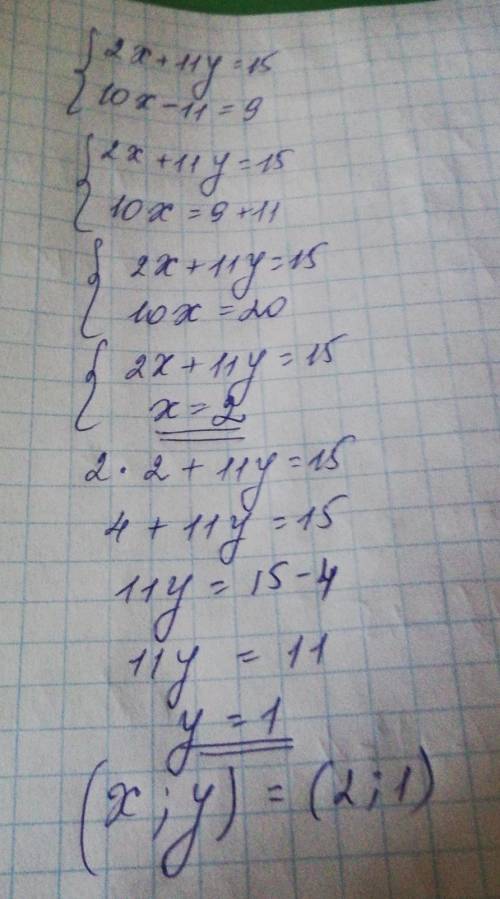 2x+11y=15
10x-11=9
2x+11y=15
10x=9+11
2x+11y=15
10x=20
2x+11y=15
x=2
2·2+11y=15
4+11y=15
11y=15-4
11y=11
y=1
(x;y)=(2;1)